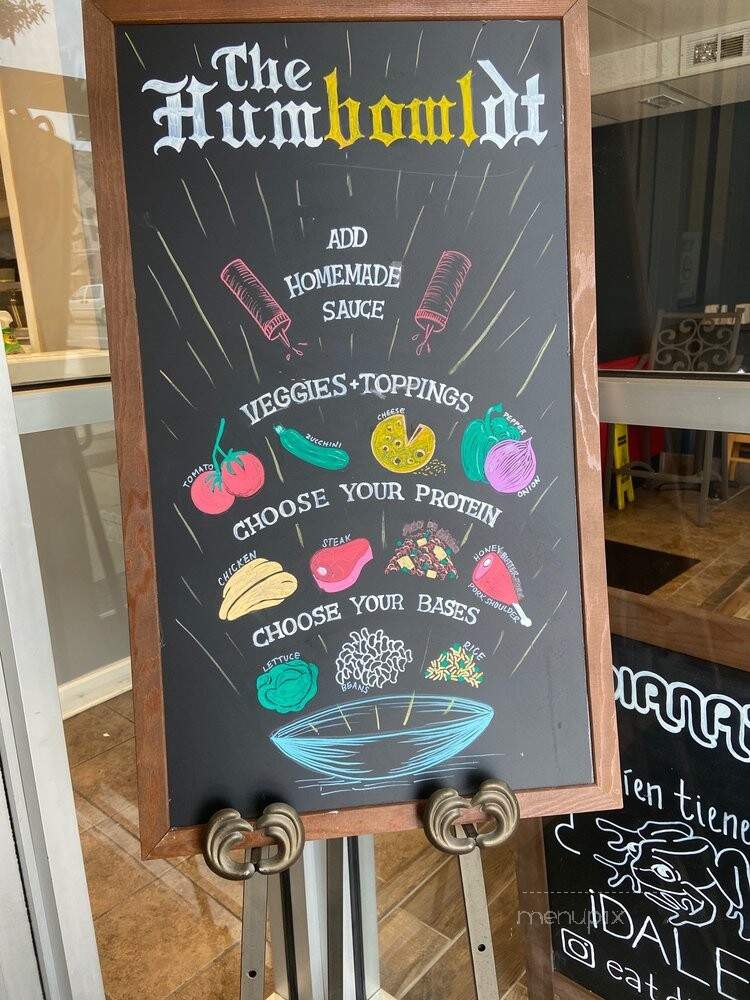 The
Humbowldt
ADD
HOMEMADE
SAUCE
VEGGIES + TOPPINGS
TOMATO
ZUCCHINI
CHEESE
PEPPER
ONION
CHOOSE YOUR PROTEIN
CHICKEN
STEAK
HONEY BUTTER
PORK SHOULDER
CHOOSE YOUR BASES
LETTUCE
BEANS
RICE
menupix
DIANA
ien tiene
¡DALE
eat d